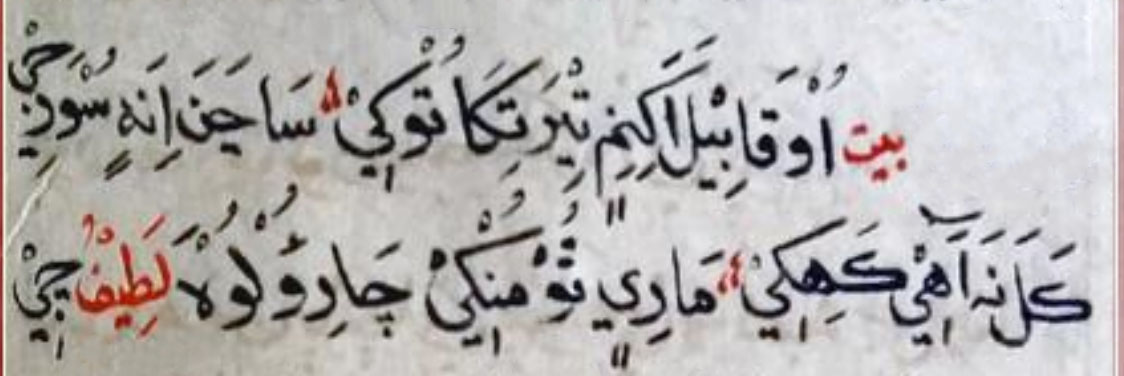 بيت اُوْ قَابِيْلَ اَکِنِمِ تِيْرَ تِکَا تُوْکِيْ سَاجَنَ اِنَهٍ سُوْدِجِيْ
کَلَ نَہ آهِيْ کَهِکِيْ مَارِيٍ تُوْ مُنکِيْ چَارِوُّ لُوْهُ لَطِيْفُ چِيْ